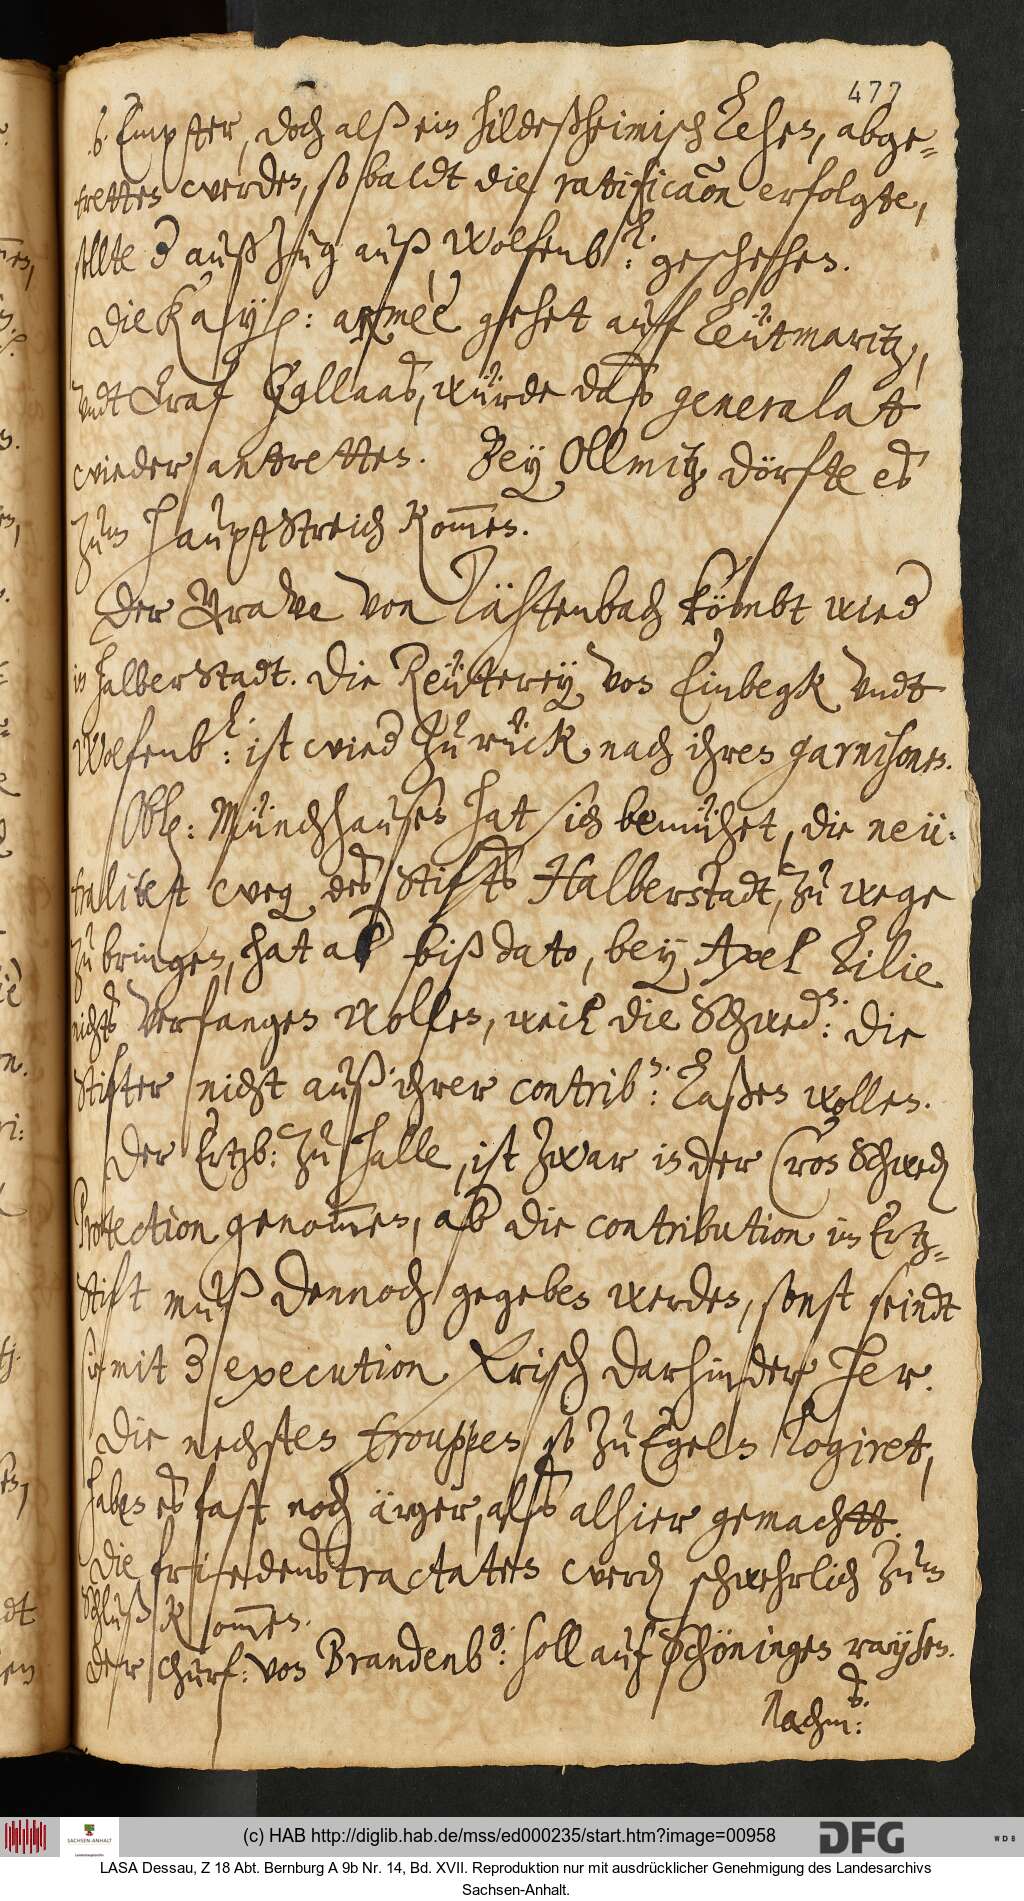 477
6. Empter, doch alß ein Hildeßheimisch Lehen, abge=
tretten werden, so baldt die ratificaõn erfolgte,
sollte d außzug auß Wolfenb: geschehen.
Die Kayß: armèe gehet auff Leütmaritz,
undt Graf Gallaas, würde daß generalat
wieder antretten. Bey Ollmitz dörfte es
zum HauptStreich kom̄en.
Der Grave von Tähtenbach kömbt wied
in HalberStadt. Die Reüterey von Einbegk undt
Wolfenb: ist wied zu rück nach ihren garnisonen.
Ob: Münchhausen hat sich bemühet, die neu=
tralitet weg des Stifts Halberstadt, zu wege
zu bringen, hat ab biß dato, bey Axel Lilie
nichts verfangen wollen, weil die Schwed: die
Stifter nicht auß ihrer contrib: Laßen wollen.
Der Ertzb: zu Halle, ist zwar in der Cron Schwed
Protection genom̄en, ab die contribution im Ertz=
Stift muß dennoch gegeben werden, sonst seindt
sie mit d execution frisch darhinder her.
Die nechsten trouppen so zu Egeln logiret,
haben es fast noch ärger, alß alhier gemachtt.
Die friedenstractaten werd schwehrlich zum
Schluß kom̄en.
Der Churf: von Brandenb: soll auf Schöningen raysen.
Nachm:
(c) HAB http://diglib.hab.de/mss/ed000235/start.htm?image=00958
SACHSEN-ANHALT
DFG
WDB
LASA Dessau, Z 18 Abt. Bernburg A 9b Nr. 14, Bd. XVII. Reproduktion nur mit ausdrücklicher Genehmigung des Landesarchivs
Sachsen-Anhalt.